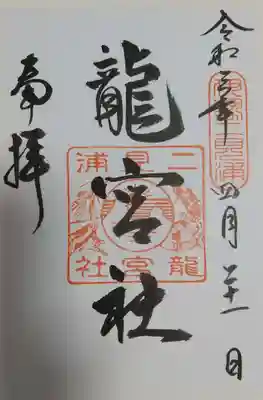 令和三年四月二十一日
龍宮社
奉拝
二見浦
龍宮社